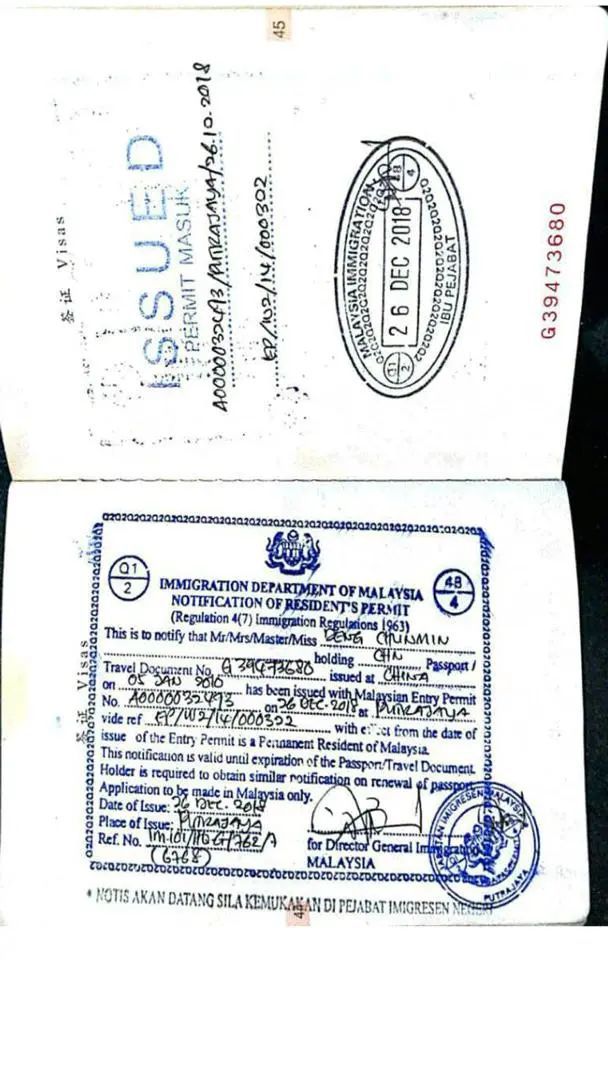 45
签证 Visas
ISSUED
PERMIT MASUK
A0000032493/PUTRAJAYA/26.10.2018
EP/W2/14/000302
MALAYSIA IMMIGRATION
Q1
2
26 DEC 2018
4B
4
IBU PEJABAT
G39473680
签证 Visas
Q1
2
4B
4
IMMIGRATION DEPARTMENT OF MALAYSIA
NOTIFICATION OF RESIDENT'S PERMIT
(Regulation 4(7) Immigration Regulations 1963)
This is to notify that Mr/Mrs/Master/Miss DENG CHUNMIN
holding CHN Passport /
Travel Document No. G39473680 issued at CHINA
on 05 JAN 2010 has been issued with Malaysian Entry Permit
No. A0000032493 on 26 DEC. 2018 at PUTRAJAYA
vide ref EP/W2/14/000302 with effect from the date of
issue of the Entry Permit is a Permanent Resident of Malaysia.
This notification is valid until expiration of the Passport/Travel Document.
Holder is required to obtain similar notification on renewal of passport.
Application to be made in Malaysia only.
Date of Issue: 26 DEC. 2018
Place of Issue: PUTRAJAYA
Ref. No. IM.101/HQ-G/762/7
(6768)
for Director General Immigration
MALAYSIA
PUTRAJAYA
* NOTIS AKAN DATANG SILA KEMUKAKAN DI PEJABAT IMIGRESEN NEGERI